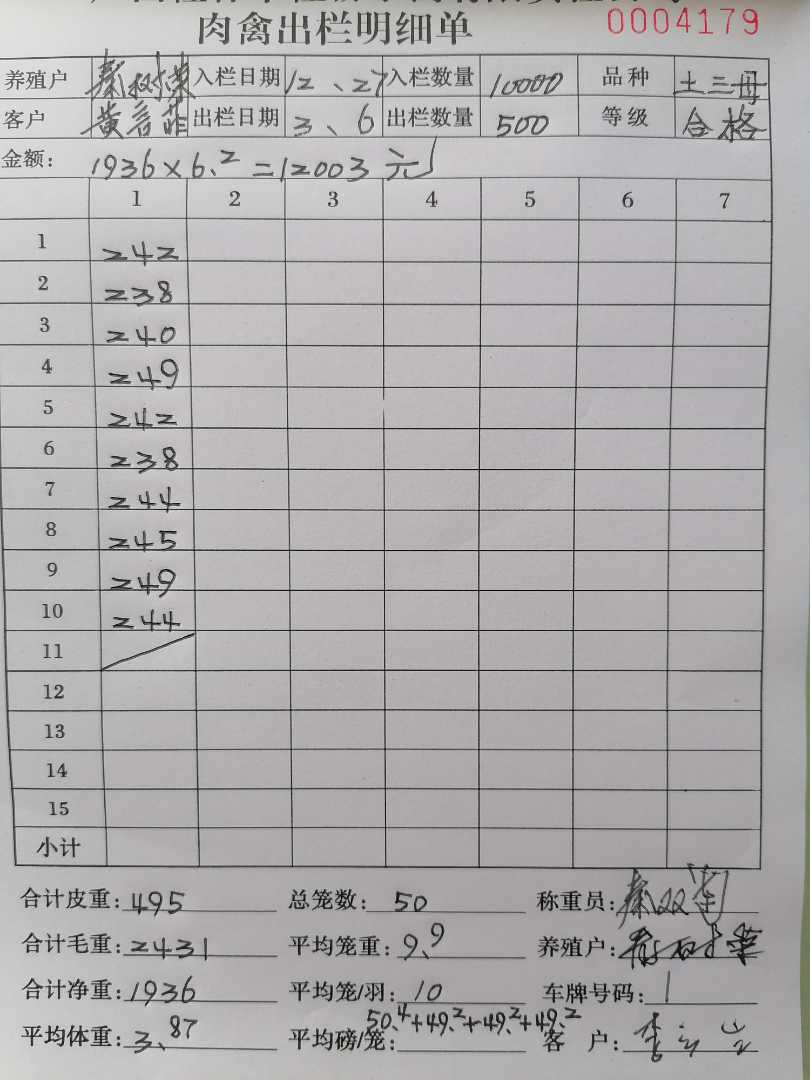 肉禽出栏明细单 0004179
养殖户 秦树荣 入栏日期 12、27 入栏数量 10000 品种 土三母
客户 黄言菲 出栏日期 3、6 出栏数量 500 等级 合格
金额: 1936×6.2=12003元
1 2 3 4 5 6 7
1 242
2 238
3 240
4 249
5 242
6 238
7 244
8 245
9 249
10 244
11
12
13
14
15
小计
合计皮重: 495 总笼数: 50 称重员:
合计毛重: 2431 平均笼重: 9.9 养殖户:
合计净重: 1936 平均笼/羽: 10 车牌号码: 1
平均体重: 3.87 平均磅/笼: 50.4+49.2+49.2+49.2 客户: